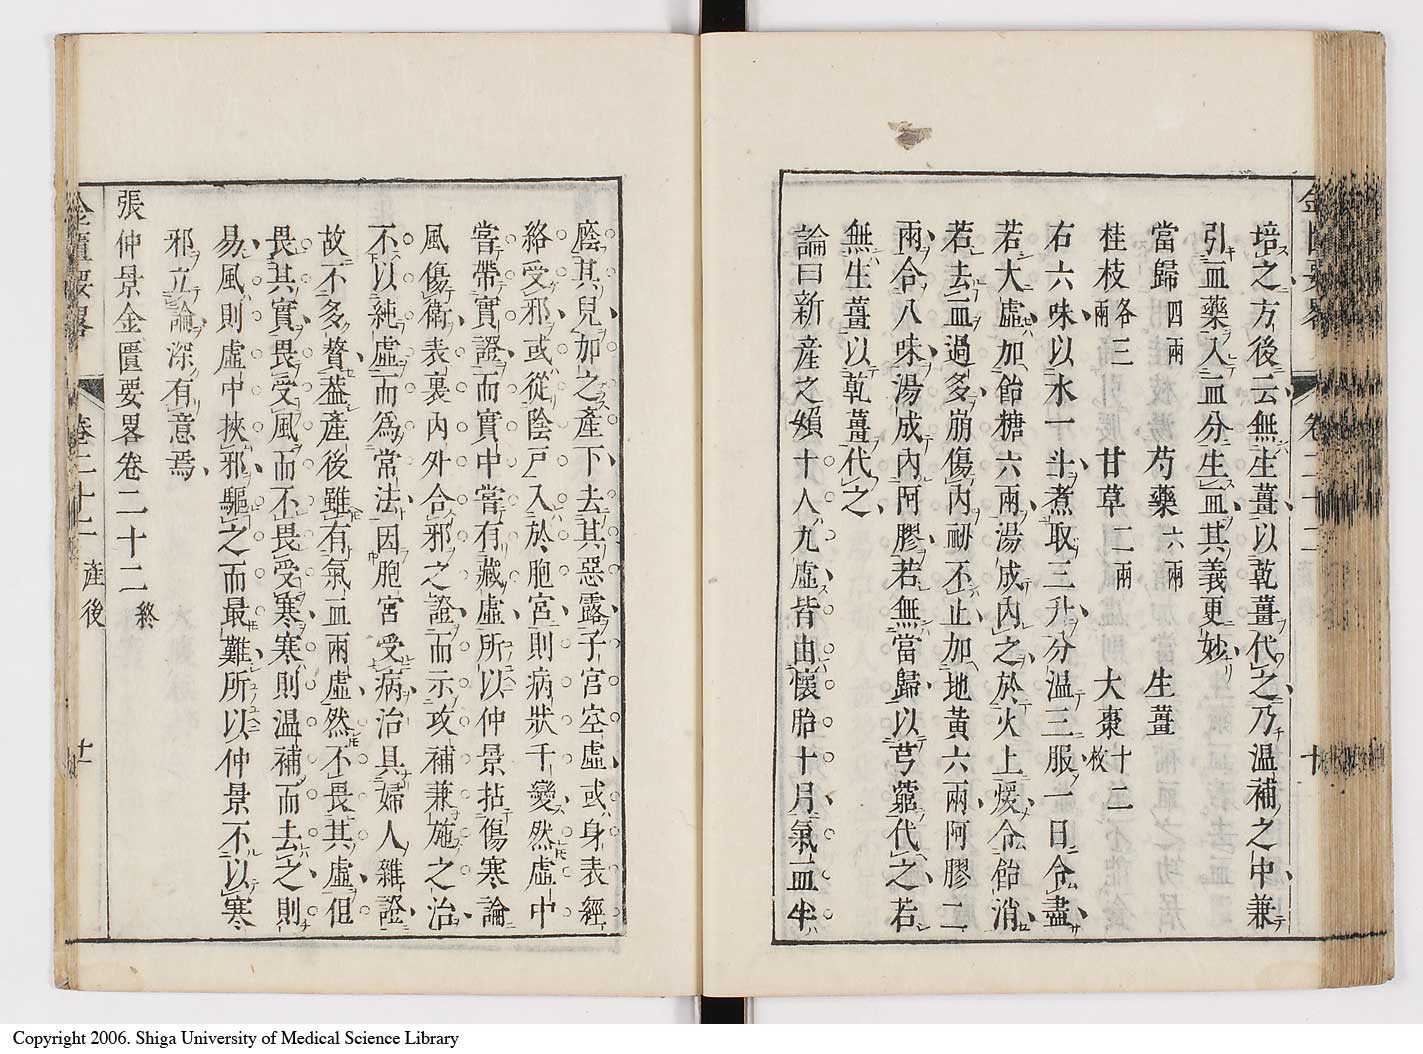 培之方後云無生薑以乾薑代之乃溫補之中兼
引血藥入血分生血其義更妙
當歸四兩 芍藥六兩 生薑
桂枝各三兩 甘草二兩 大棗十二枚
右六味以水一斗煮取三升分温三服一日令盡
若大虛加飴糖六兩湯成內之於火上煖令飴消
若去血過多崩傷內衂不止加地黃六兩阿膠二
兩合八味湯成內阿膠若無當歸以芎藭代之若
無生薑以乾薑代之
論曰新產之婦十人九虛皆由懷胎十月氣血半
廕其兒加之產下去其惡露子宮空虛或身表經
絡受邪或從陰戶入於胞宮則病狀千變然虛中
當帶實證而實中當有藏虛所以仲景拈傷寒論
風傷衛表裏內外合邪之證而示攻補兼施之治
不以純虛而爲常法因胞宮受病治具婦人雜證
故不多贅葢產後雖有氣血兩虛然不畏其虛但
畏其實畏受風而不畏受寒寒則温補而去之則
易風則虛中挾邪驅之而最難所以仲景不以寒
邪立論深有意焉
張仲景金匱要畧卷二十二終
金匱要畧 卷二十二 產後 十一